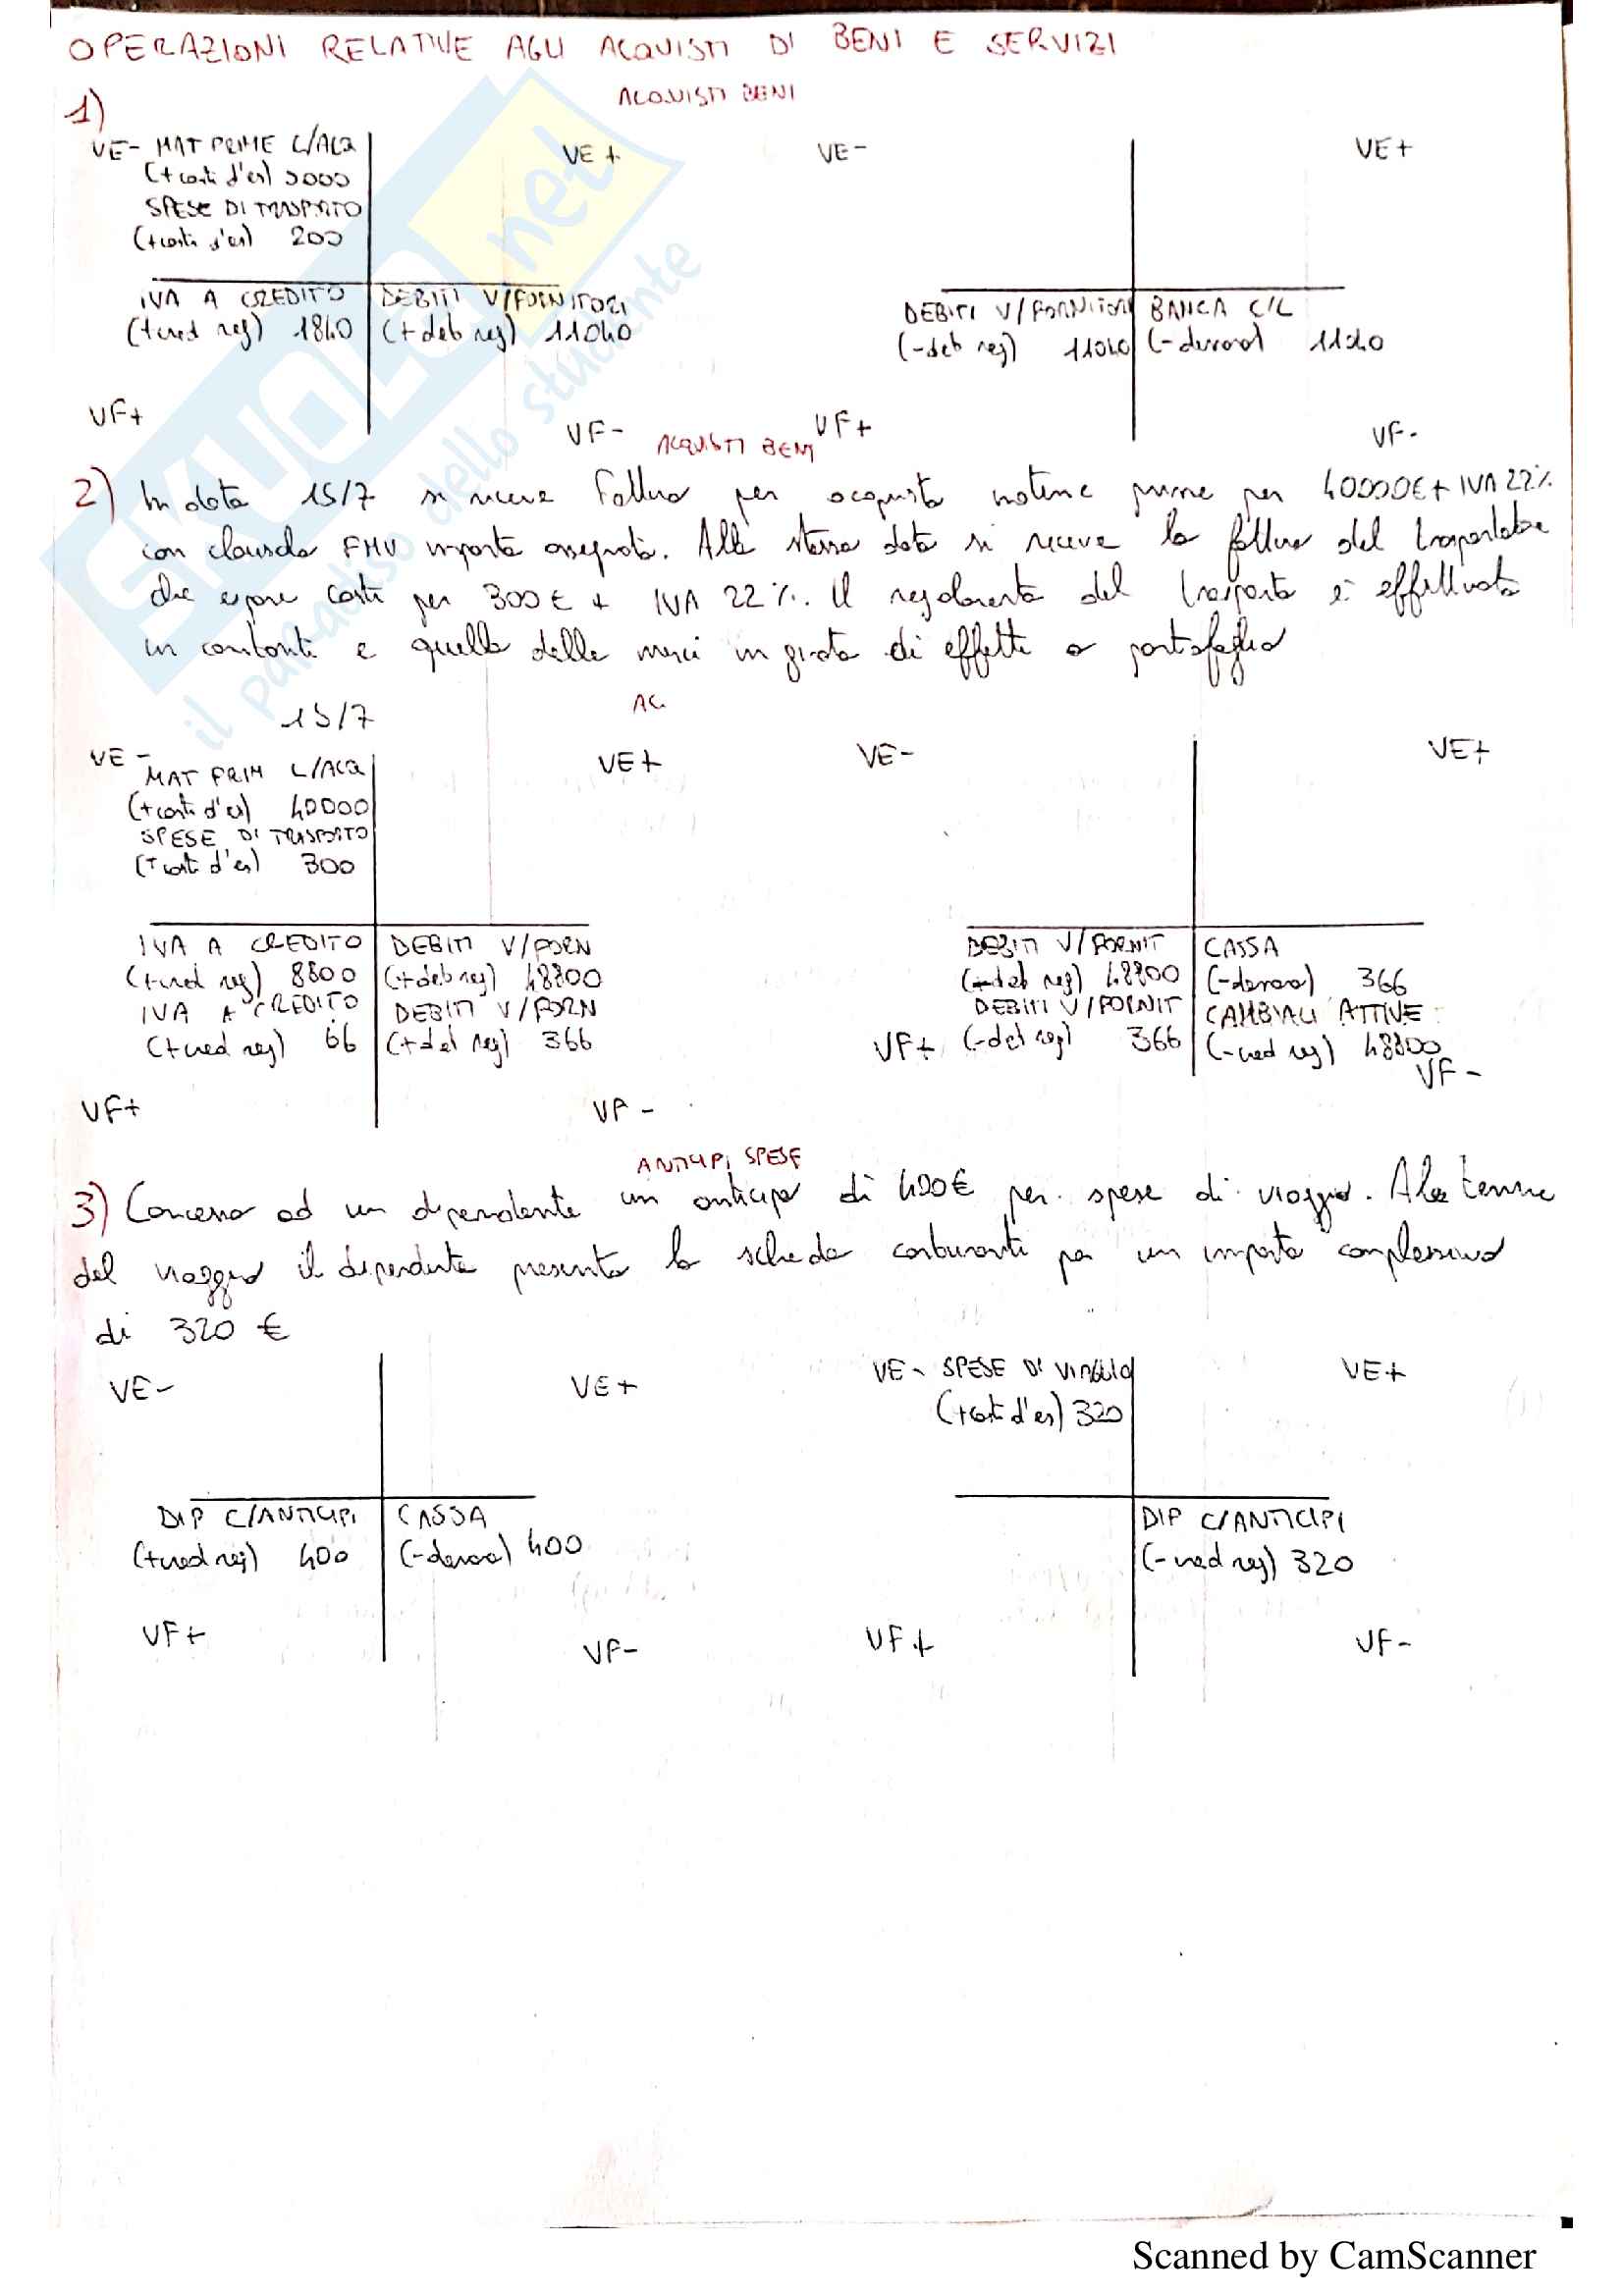 OPERAZIONI RELATIVE AGLI ACQUISTI DI BENI E SERVIZI
ACQUISTI BENI
1)
VE- MAT PRIME C/ACQ VE + VE- VE+
(+costi d'es)
SPESE DI TRASPORTO
(+costi d'es) 200
IVA A CREDITO DEBITI V/FORNITORI DEBITI V/FORNITORI BANCA C/C
(+cred reg) 1840 (+ deb reg) 11040 (-deb reg) 11040 (-denaro) 11040
VF+ VF- VF+ VF-
ACQUISTI BENI
2) In data 15/7 si riceve fattura per acquisto materie prime per 40000€ + IVA 22%
con clausola FMV importo assegnato. Alla stessa data si riceve la fattura del trasportatore
che espone costi per 300€ + IVA 22%. Il regolamento del trasporto è effettuato
in contanti e quello delle merci in girata di effetti a portafoglio
15/7 AC.
VE- VE+ VE- VE+
MAT PRIM C/ACQ
(+costi d'es) 40000
SPESE DI TRASPORTO
(+costi d'es) 300
IVA A CREDITO DEBITI V/FORN DEBITI V/FORNIT CASSA
(+cred reg) 8800 (+deb reg) 48800 (-deb reg) 48800 (-denaro) 366
IVA A CREDITO DEBITI V/FORN DEBITI V/FORNIT CAMBIALI ATTIVE
(+cred reg) 66 (+deb reg) 366 VF+ (-deb reg) 366 (-cred reg) 48800
VF-
VF+ VF-
ANTICIPI SPESE
3) Concesso ad un dipendente un anticipo di 400€ per spese di viaggio. Al termine
del viaggio il dipendente presenta la scheda carburanti per un importo complessivo
di 320 €
VE- VE+ VE- SPESE DI VIAGGIO VE+
(+costi d'es) 320
DIP C/ANTICIPI CASSA DIP C/ANTICIPI
(+cred reg) 400 (-denaro) 400 (-cred reg) 320
VF+ VF- VF+ VF-
SKUOLA.net
il paradiso dello studente
Scanned by CamScanner